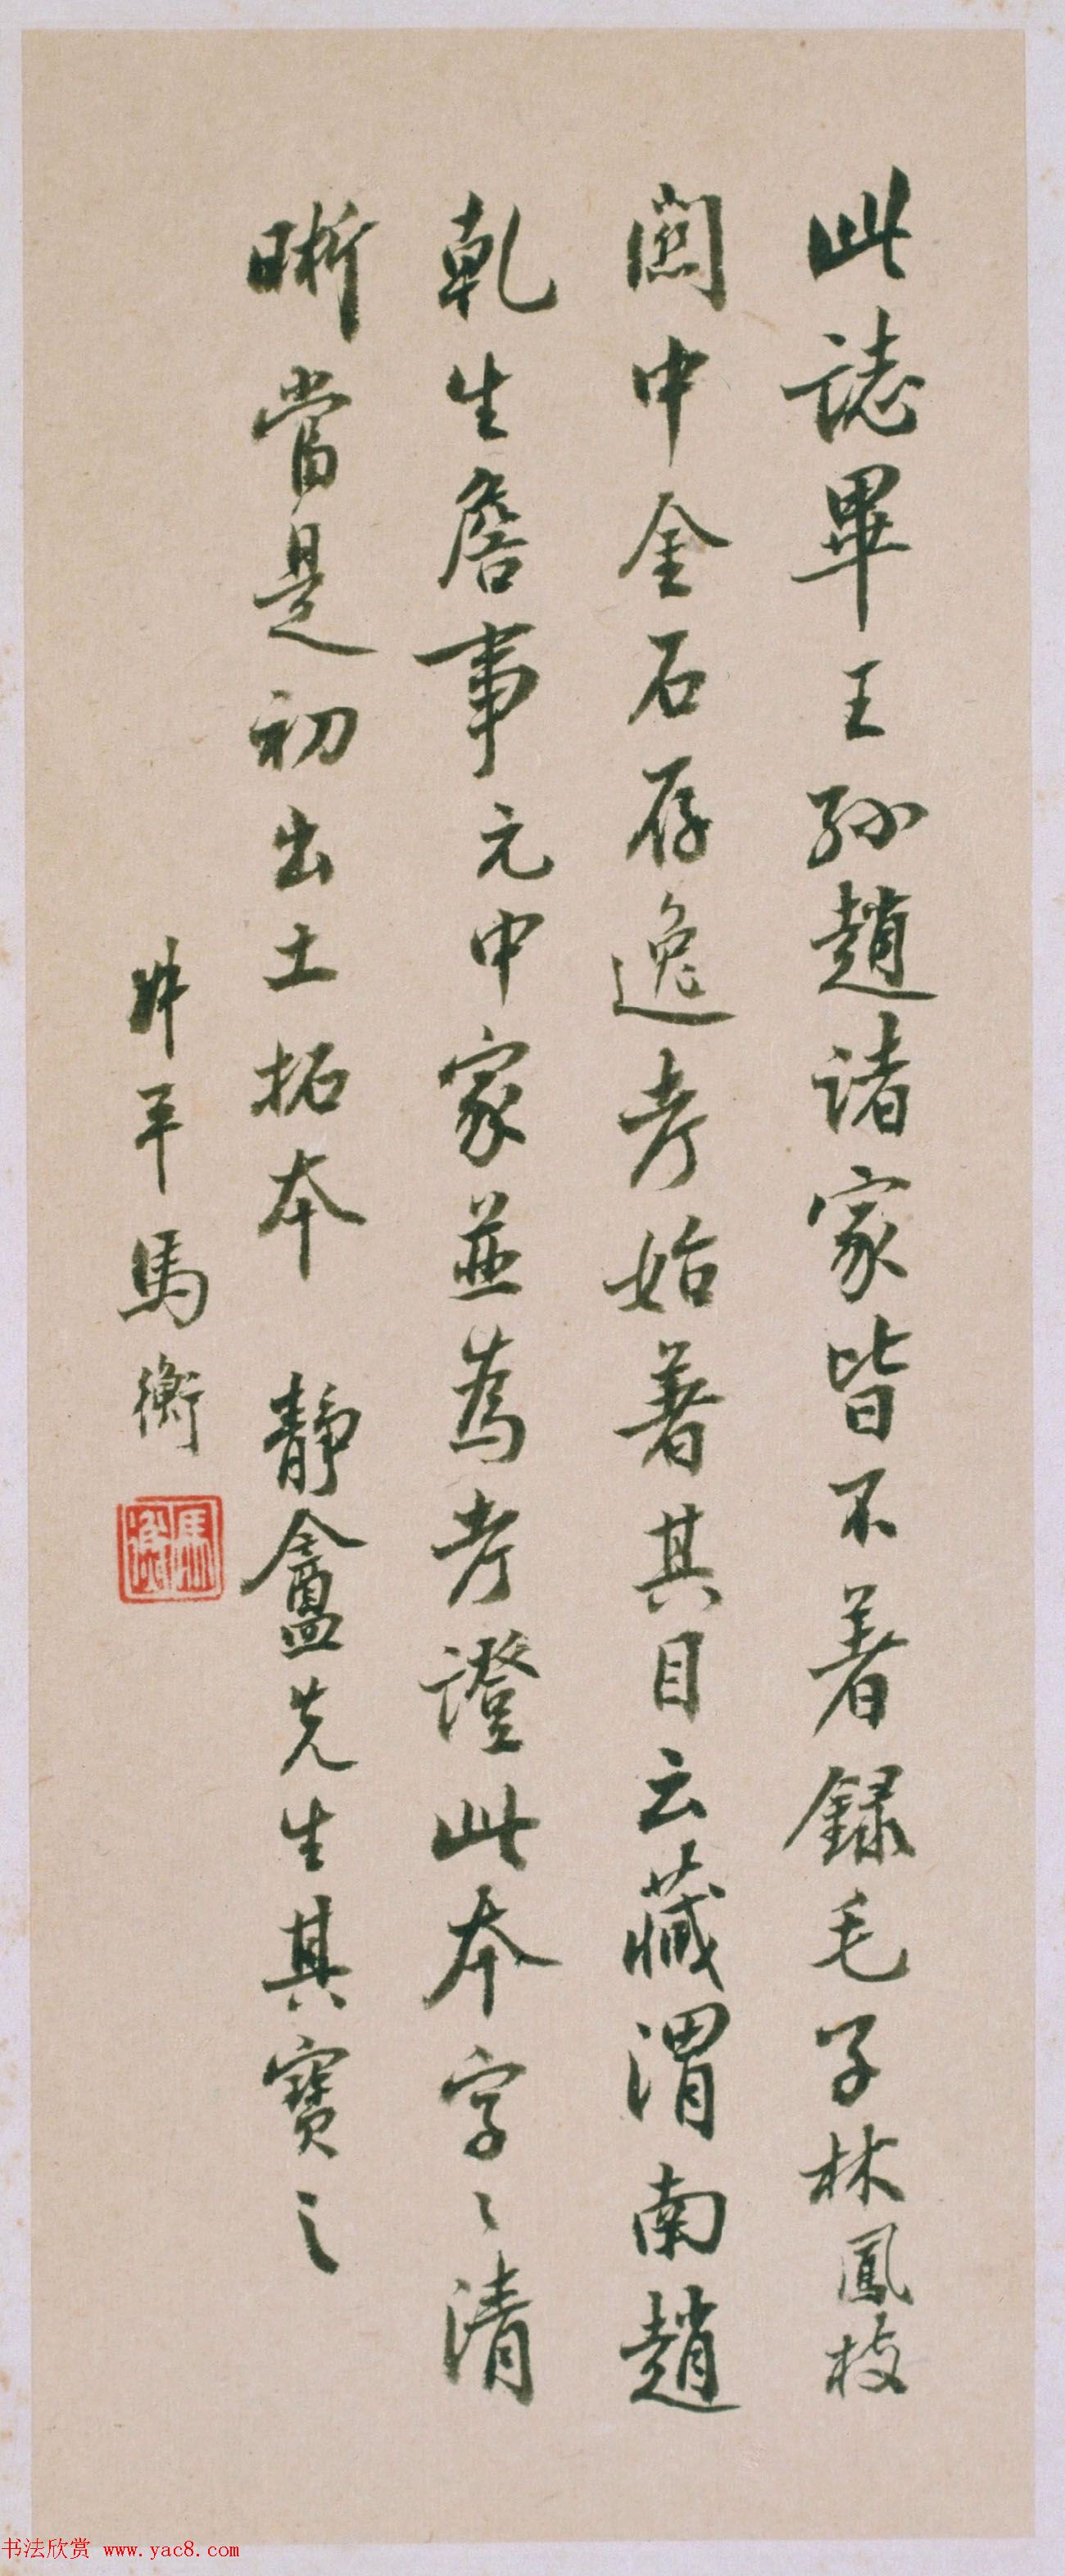 此誌畢王孫趙諸家皆不著錄毛子林鳳枝
關中金石存逸考始著其目云藏渭南趙
乾生詹事元中家並為考證此本字〻清
晰當是初出土拓本 靜盦先生其寶之
叔平馬衡
馬衡
书法欣赏 www.yac8.com